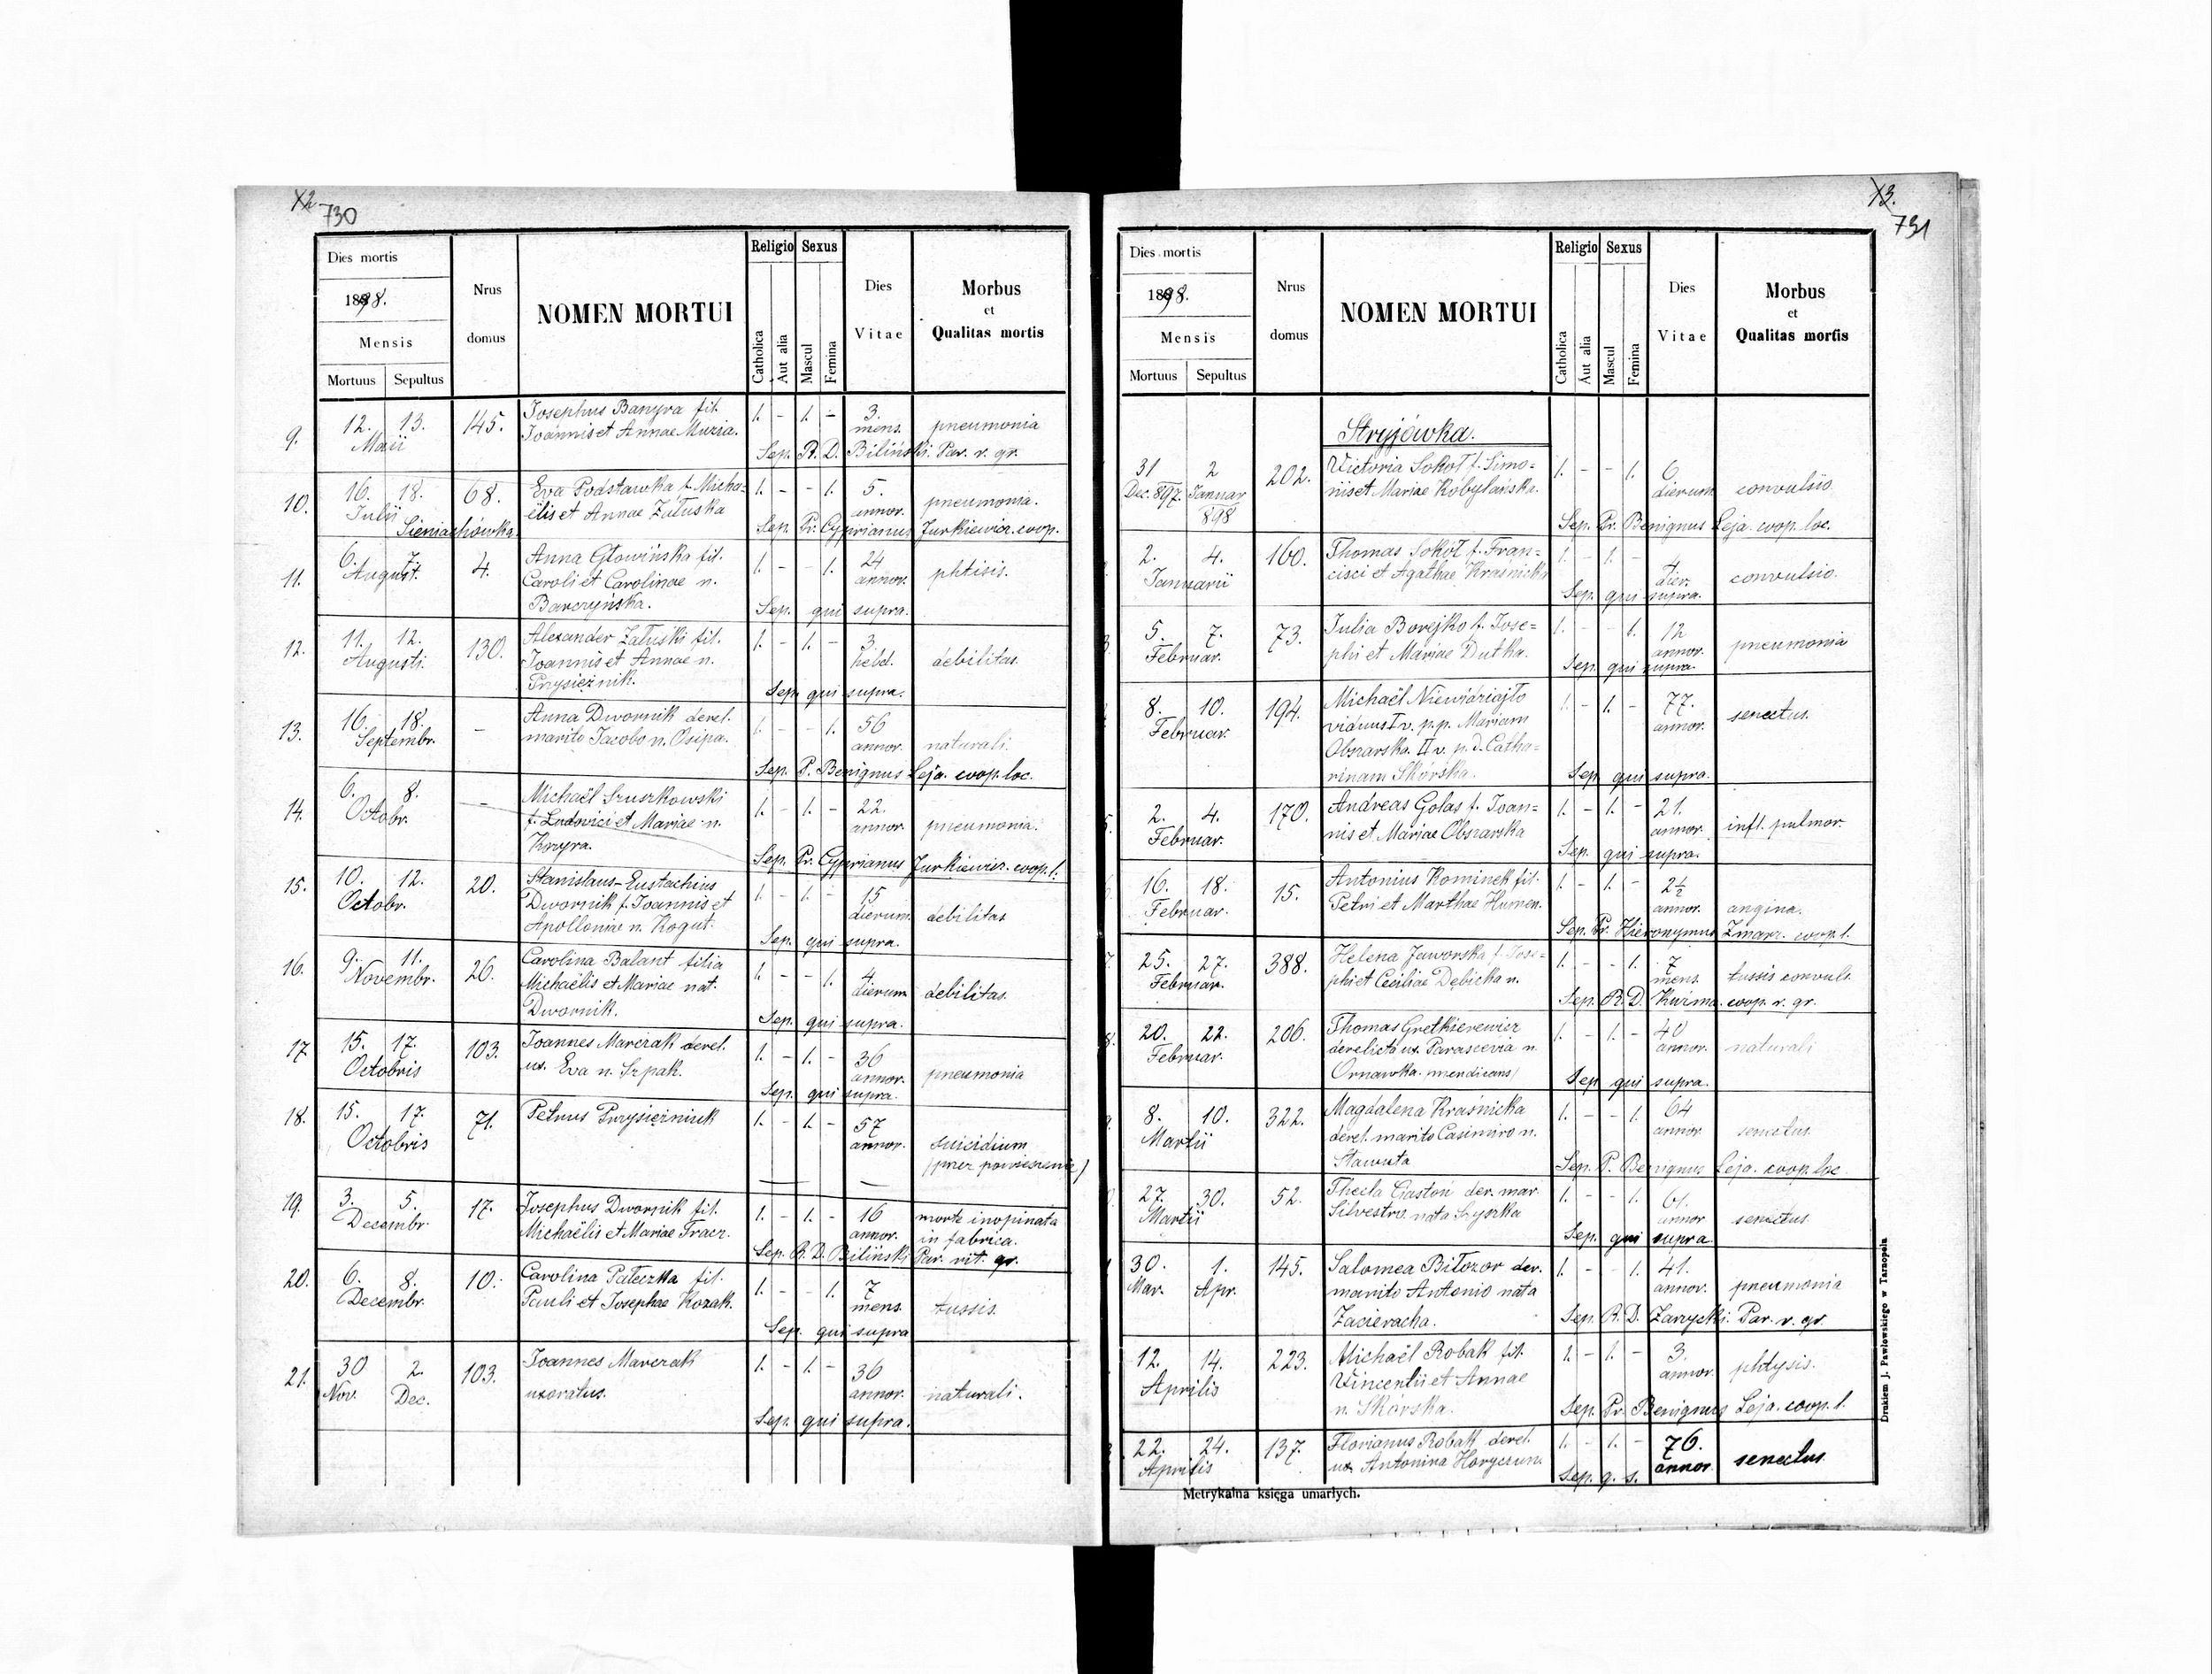 X2
730
Dies mortis
1898.
Mensis
Mortuus Sepultus
Nrus domus
NOMEN MORTUI
Religio
Catholica
Aut alia
Sexus
Mascul
Femina
Dies Vitae
Morbus
et
Qualitas mortis
9. 12. 13. 145. Josephus Banyra fil. 1. - 1. - 3.
Maii Joannis et Annae Muzia. mens. pneumonia
Sep. R. D. Biliński. Par. r. gr.
10. 16. 18. 68. Eva Podstawka f. Micha= 1. - - 1. 5.
Julii elis et Annae Załuska annor. pneumonia.
Sieniachówka. Sep. Pr. Cyprianus Jurkiewicz. coop.
11. 6. 7. 4. Anna Głowińska fil. 1. - - 1. 24
August. Caroli et Carolinae n. annor. phtisis.
Barczyńska. Sep. qui supra.
12. 11. 12. 130. Alexander Załuski fil. 1. - 1. - 3
Augusti. Joannis et Annae n. hebd. debilitas.
Przysiężnik. Sep. qui supra.
13. 16. 18. - Anna Dwornik derel. 1. - - 1. 56
Septembr. marito Jacobo n. Osipa. annor. naturali.
Sep. P. Benignus Leja. coop. loc.
14. 6. 8. - Michaël Szuszkowski 1. - 1. - 22.
Octobr. f. Ludovici et Mariae n. annor. pneumonia.
Krzyra. Sep. Pr. Cyprianus Jurkiewicz. coop. l.
15. 10. 12. 20. Stanislaus-Eustachius 1. - 1. - 15
Octobr. Dwornik f. Joannis et dierum debilitas
Apolloniae n. Kogut. Sep. qui supra.
16. 9. 11. 26. Carolina Balant filia 1. - - 1. 4
Novembr. Michaëlis et Mariae nat. dierum debilitas.
Dwornik. Sep. qui supra.
17 15. 17. 103. Joannes Marczak derel. 1. - 1. - 36
Octobris ux. Eva n. Szpak. annor. pneumonia
Sep. qui supra.
18. 15. 17. 71. Petrus Przysiężniuk 1. - 1. - 57
Octobris annor. suicidium
(przez powieszenie)
19. 3. 5. 17. Josephus Dwornik fil. 1. - 1. - 16 morte inopinata
Decembr. Michaëlis et Mariae Tracz. annor. in fabrica.
Sep. R. D. Biliński Par. rit. gr.
20. 6. 8. 10. Carolina Pałeczka fil. 1. - - 1. 7
Decembr. Pauli et Josephae Kozak. mens. tussis.
Sep. qui supra
21. 30 2. 103. Joannes Marczak 1. - 1. - 36
Nov. Dec. uxoratus. annor. naturali.
Sep. qui supra.
X3.
731
Dies mortis
1898.
Mensis
Mortuus Sepultus
Nrus domus
NOMEN MORTUI
Religio
Catholica
Aut alia
Sexus
Mascul
Femina
Dies Vitae
Morbus
et
Qualitas mortis
Stryjówka.
31 2 202. Victoria Sokół f. Simo= 1. - - 1. 6
Dec. 897. Januar nis et Mariae Kobylańska. dierum convulsio.
898 Sep. Pr. Benignus Leja. coop. loc.
2. 4. 160. Thomas Sokół f. Fran= 1. - 1. -
Januarii cisci et Agathae Kraśnicka dier. convulsio.
Sep. qui supra.
5. 7. 73. Julia Borejko f. Jose= 1. - 1. 12
Februar. phi et Mariae Dutka. annor. pneumonia
Sep. qui supra.
8. 10. 194. Michaël Niewidziajło 1. - 1. - 77.
Februar. viduus I v. p. p. Mariam annor. senectus.
Obszarska. II v. p. d. Catha=
rinam Skórska. Sep. qui supra.
2. 4. 170. Andreas Golas f. Joan= 1. - 1. - 21.
Februar. nis et Mariae Obszarska annor. infl. pulmor.
Sep. qui supra.
16. 18. 15. Antonius Kominek fil. 1. - 1. - 2½
Februar. Petri et Marthae Humen. annor. angina.
Sep. Pr. Hieronymus Zmarz. coop. l.
25. 27. 388. Helena Jaworska f. Jose= 1. - - 1. 7
Februar. phi et Ceciliae Dębicka n. mens. tussis convuls.
Sep. R. D. Kuźma. coop. r. gr.
20. 22. 206. Thomas Gretkierewicz 1. - 1. - 40
Februar. derelicta ux. Parascevia n. annor. naturali
Ornawka. mendicans/ Sep. qui supra.
8. 10. 322. Magdalena Kraśnicka 1. - - 1. 64
Martii derel. marito Casimiro n. annor. senectus.
Stawuta Sep. P. Benignus Leja. coop. loc
27. 30. 52. Thecla Gastoń der. mar. 1. - - 1. 61.
Martii Silvestro nata Szyszka annor senectus.
Sep. qui supra.
30. 1. 145. Salomea Biłozor der. 1. - 1. 41.
Mar. Apr. marito Antonio nata annor. pneumonia
Zacieracha. Sep. R. D. Zarzycki. Par. r. gr.
12. 14. 223. Michaël Robak fil. 1. - 1. - 3.
Aprilis Vincentii et Annae annor. phtysis.
n. Skórska. Sep. Pr. Benignus Leja. coop. l.
22. 24. 137. Florianus Robak derel. 1. - 1. - 76.
Aprilis ux. Antonina Horyczun. annor. senectus.
Sep. q. s.
Metrykalna księga umarłych.
Drukiem J. Pawłowskiego w Tarnopolu